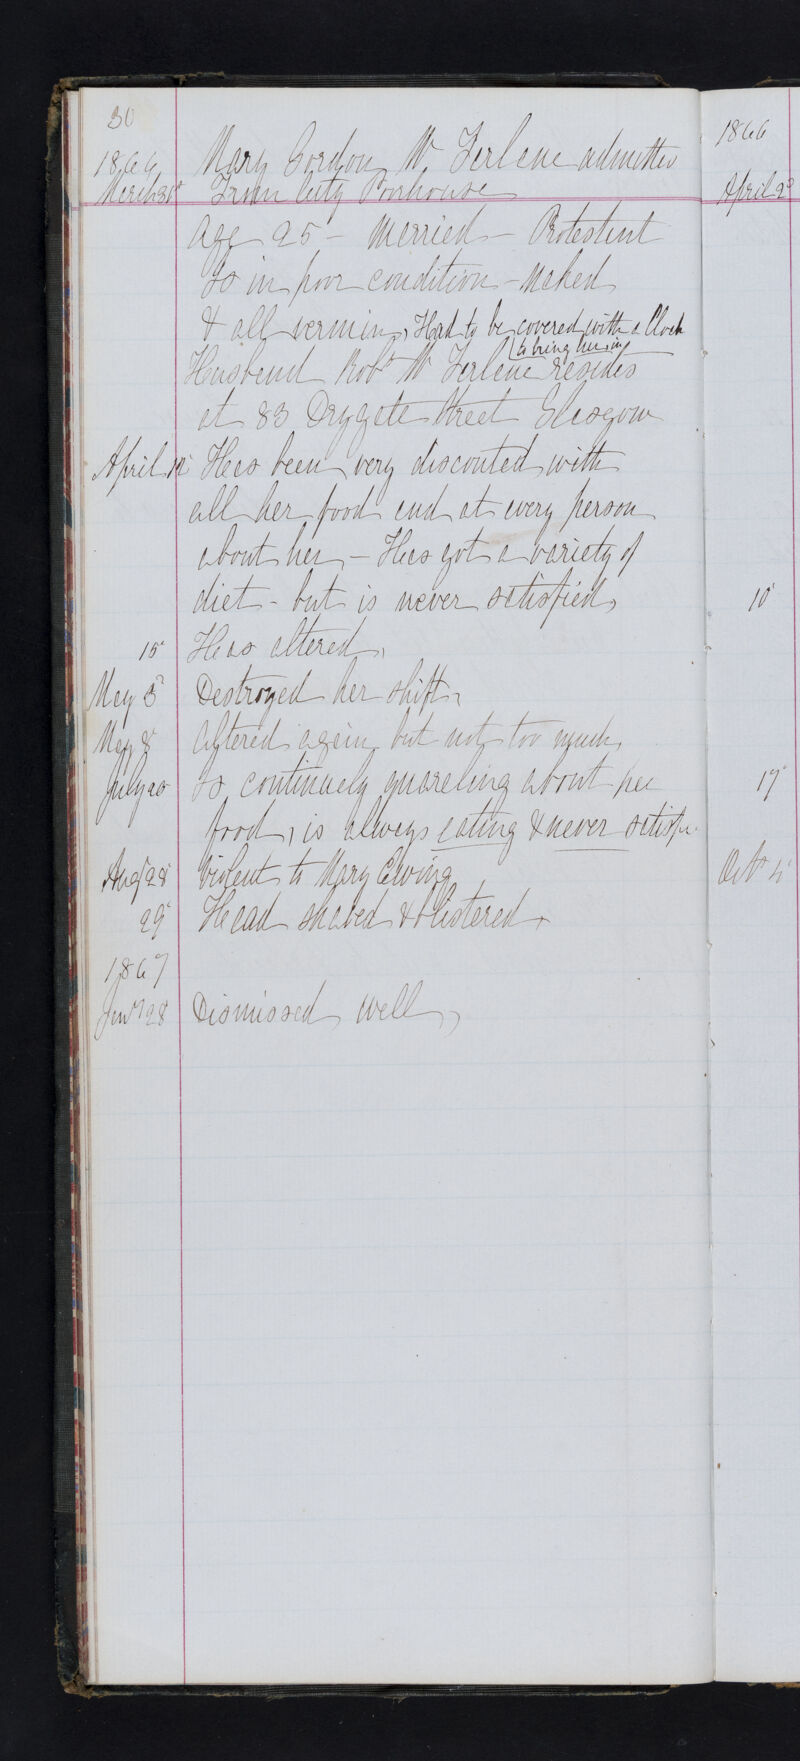 30
1866 Mary Gordon Mc Ferlane admitted
March 31st From City Poorhouse
Age 25 - Married - Protestant
Is in poor condition - Naked
& all vermin, Had to be covered with a Cloak
to bring her in
Husband Robt Mc Ferlane resides
at 83 Drygate Street Glasgow
April 12 Has been very discontted with
all her food and at every person
about her, - Has got a variety of
diet - but is never satisfied,
15 Has altered,
May 5 Destroyed her shift,
May 8 altered again but not too much,
July 20 Is continualy quareling about her
food, is always eating & never satisfi
Augt 28 Violent to Mary Ewing
29 Head shaved & blistered,
1867
Jany 28 Dismissed well,
1866
April 2d
10
17
Octr 4